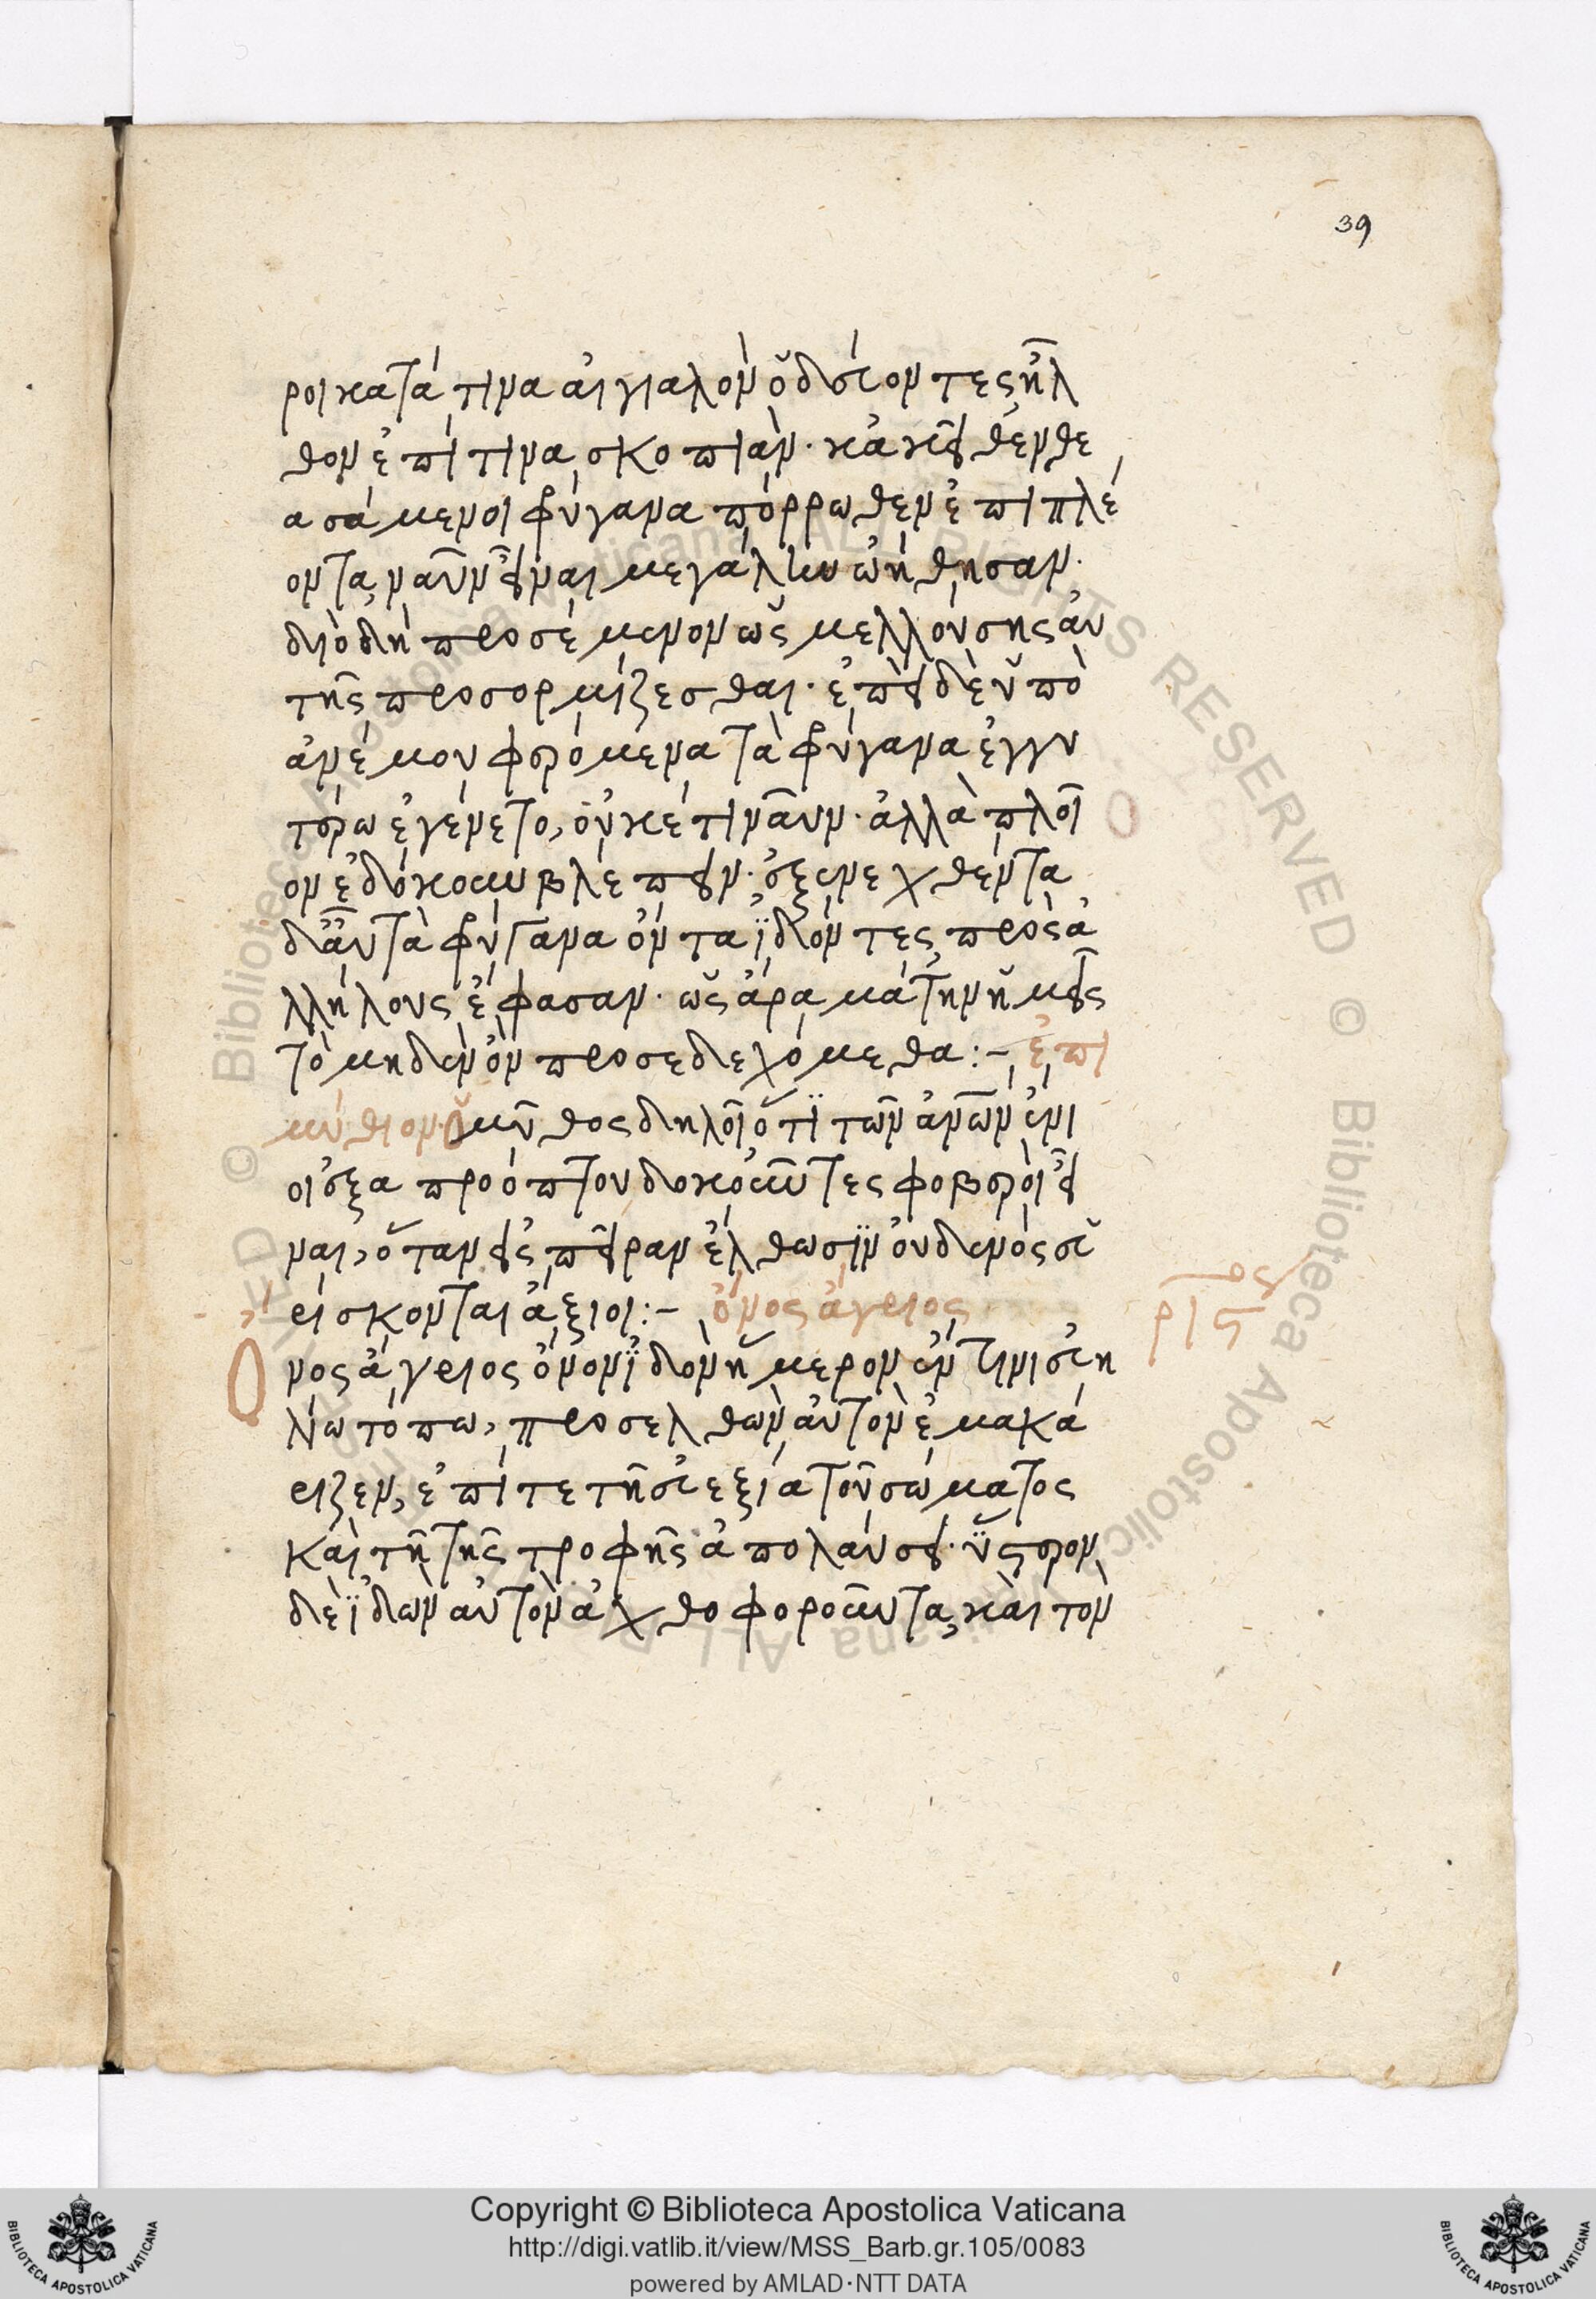 39
ροι κατά τινα αἰγιαλὸν ὁδεύοντες ἦλ
θον ἐπί τινα σκοπιάν· κἀκεῖθεν θε
ασάμενοι φρύγανα πόρρωθεν ἐπιπλέ
οντα, ναῦν εἶναι μεγάλην ὠήθησαν·
διὸ δὴ προσέμενον ὡς μελλούσης αὐ
τῆς προσορμίζεσθαι· ἐπεὶ δὲ ὑπὸ
ἀνέμου φερόμενα τὰ φρύγανα ἐγγυ
τέρω ἐγένετο, οὐκέτι ναῦν· ἀλλὰ πλοῖ
ον ἐδόκουν βλέπειν· ἐξενεχθέντα
δ' αὐτὰ φρύγανα ὄντα ἰδόντες πρὸς ἀ
λλήλους ἔφασαν· ὡς ἄρα μάτην ἡμεῖς
τὸ μηδὲν ὂν προσεδεχόμεθα:– ἐπι
μύθιον· ὁ μῦθος δηλοῖ ὅτι τῶν ἀνων ἔνι
οι ἐξαπροόπτου δοκοῦντες φοβεροὶ εἶ
ναι, ὅταν εἰς πεῖραν ἔλθωσιν οὐδενὸς εὑ
ρίσκονται ἄξιοι:– ὄνος ἄγριος
ος
ρις
Ὄνος ἄγριος ὄνον ἰδὼν ἥμερον ἔν τινι εὐη
λίω τόπω, προσελθὼν αὐτὸν ἐμακά
ριζεν, ἐπί τε τῆ εὐεξία τοῦ σώματος
καὶ τῆ τῆς τροφῆς ἀπολαύσει· ὕστερον
δὲ ἰδὼν αὐτὸν ἀχθοφοροῦντα, καὶ τὸν
Copyright © Biblioteca Apostolica Vaticana
http://digi.vatlib.it/view/MSS_Barb.gr.105/0083
powered by AMLAD·NTT DATA